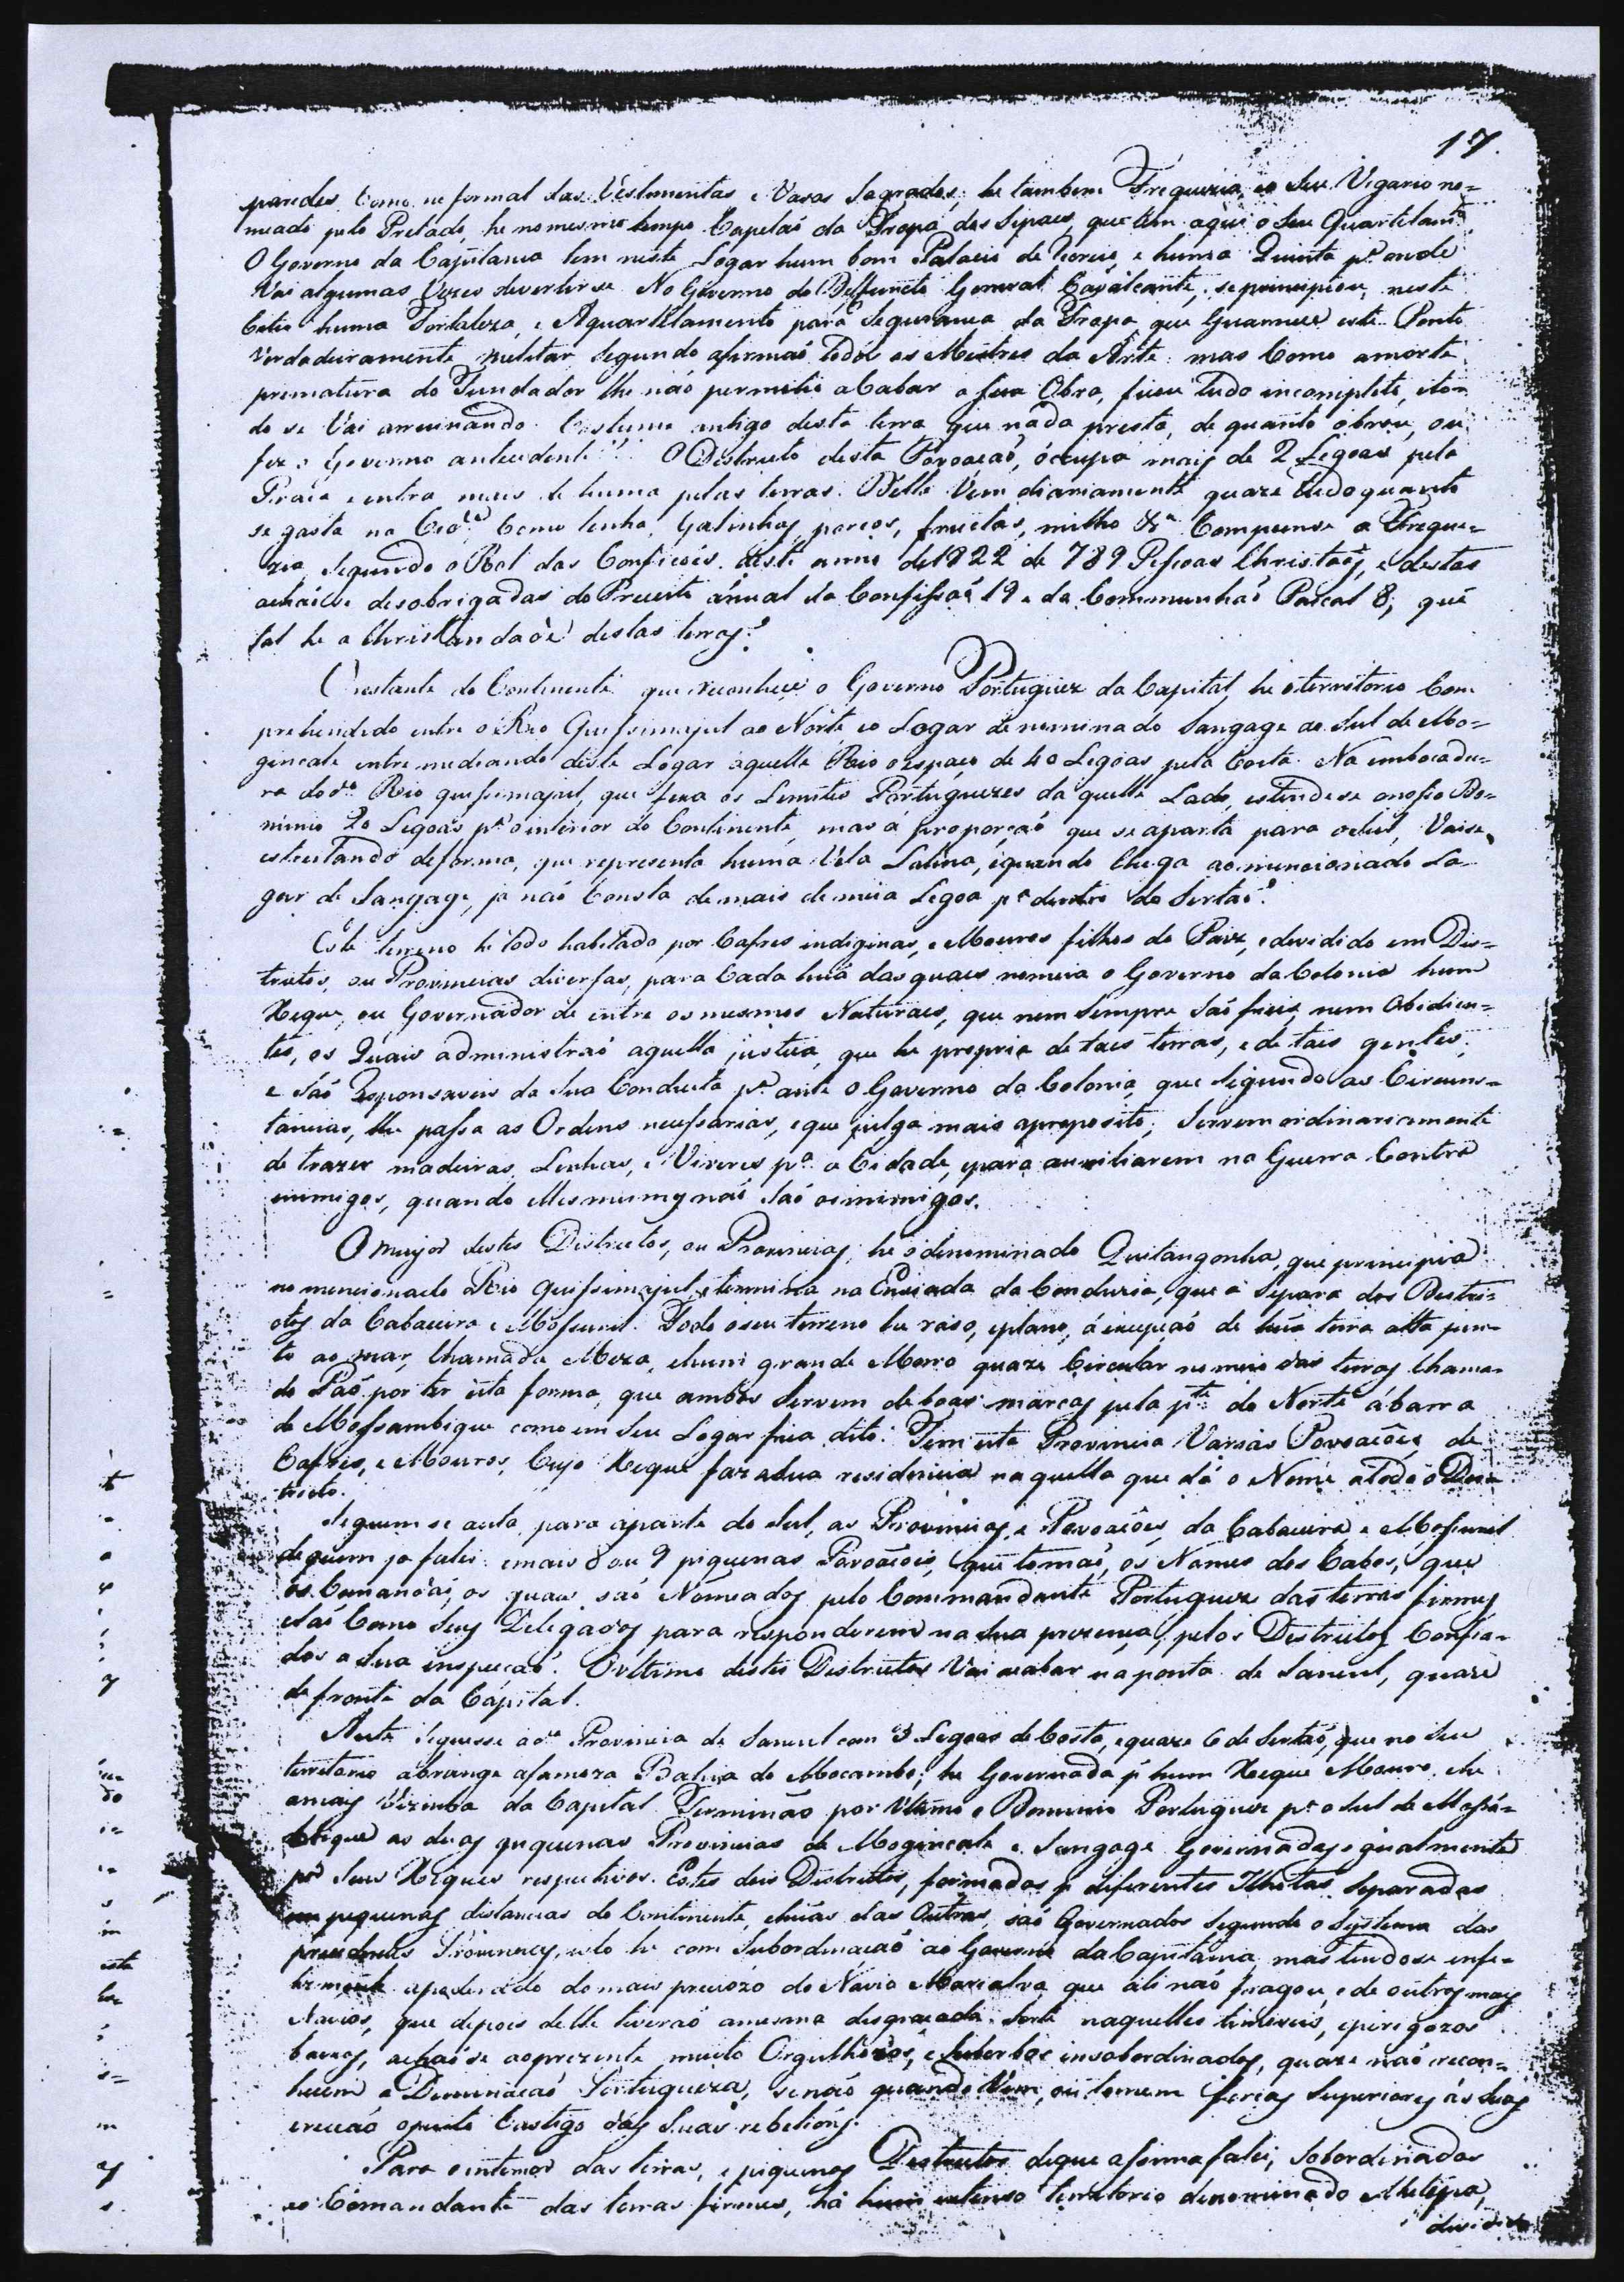 17.
paredes, como no formal das Vestimentas e Vasos Sagrados: he tambem Freguezia, e o seu Vigario no=
meado pelo Prelado, he no mesmo tempo Capelaõ da Tropa dos Sipaes, que tem aqui o seu Quartelamto.
O Governo da Capitania tem neste Logar hum bom Palacio de Recreio, e huma Quinta pa. onde
Vai algumas Vezes divertirse. No Governo do Deffuncto General Cavalcante, se principiou, neste
Citio huma Fortaleza, e Aquartelamento para Segurança da Tropa que Guarnece este Ponto
Verdadeiramente militar Segundo afirmaõ todos os Mestres da Arte: mas Como a morte
prematura do Fundador lhe naõ permitio acabar a sua Obra, ficou tudo incompleto, e to=
do se Vai arruinando. Costume antigo desta terra que nada presta, de quanto obrou, ou
fez o Governo antecedente!! O Destricto desta Povoaçaõ, occupa mais de 2 Legoas pela
Praia e entra mais de huma pelas terras. Delle Vem diariamente quaze tudo quanto
se gasta na Cide. Como lenha, Galinhas, porcos, fructas, milho &a. Compoense a Fregue=
zia, Segundo o Rol das Confissoẽs deste anno de 1822 de 789 Pessoas Christaãs, e destas
achaõse desobrigadas do Preceito ánual da Confissaõ 19 e da Communhaõ Pascal 8, que
tal he a Christandade destas terras.
O restante do Continente que reconhece o Governo Portuguez da Capital, he o territorio Com
prehendido entre o Rio Quissimajul ao Norte, e o Logar denominado Sangage ao Sul de Mo=
gincale entremediando deste Logar áquelle Rio o espaço de 40 Legoas pela Costa. Na embocadu=
ra do do. Rio quissimajul, que fixa os Limites Portuguezes daquelle Lado, estendese o nosso Do=
minio 20 Legoas pa. o interior do Continente, mas á proporçaõ que se aparta para o Sul, Vaise
estreitando de forma, que representa huma Vela Latina, e quando Chega ao mencionado Lo
gar de Sangage, ja naõ Consta de mais de meia Legoa pa. dentro do Sertaõ.
Este terreno he todo habitado por Cafres indiginas, e Mouros filhos do Paiz, e devidido em Dis=
trictos, ou Provincias diversas, para Cada huã das quaes nomeia o Governo da Colonia hum
Xeque, ou Governador de entre os mesmos Naturaes, que nem sempre Saõ fieis, nem Obidien=
tes, os Quaes administraõ aquella justiça, que he propria de taes terras, e de taes gentes;
e Saõ Responsaveis da Sua Conducta pa. ante o Governo da Colonia, que Segundo as Circuns=
tancias, lhe passa as Ordens necessarias, e que julga mais aproposito; Servem ordinariamente
de trazer madeiras, Lenhas, e Viveres pa. a Cidade, e para auxiliarem na Guerra Contra
inimigos, quando elles mesmos naõ Saõ os inimigos.
O maior destes Districtos, ou Provincias, he o denominado Quitangonha, que principia
no mencionado Rio Quissimajul e termina na Enseada da Conducia, que a Separa dos Destri=
ctos da Cabaceira e Mossuril. Todo o seu terreno he raso, e plano, á excepçaõ de huã terra alta jun=
to ao mar, Chamada Meza, e hum grande Morro quaze Circular no meio das terras Chama=
do Paõ por ter esta forma, que ambos Servem de boas marcas pela pte. do Norte á barra
de Mossambique como em Seu Logar fica dito. Tem esta Provincia Varias Povoaçoẽs de
Cafres, e Mouros, Cujo Xeque faz a Sua residencia naquella que dá o Nome a todo o Des=
tricto.
Seguem se a esta, para aparte do Sul, as Provincias, e Povoaçoẽs, da Cabaceira, e Mossuril
de quem ja falei e mais 8 ou 9 pequenas Povoaçoẽs, que tomaõ, os Nomes dos Cabos, que
os Comandaõ, os quaes saõ Nomeados pelo Commandante Portuguez das terras firmes
e Saõ Como Seus Delegados para responderem na Sua prezença, pelos Destrictos Confia=
dos a Sua inspecçaõ. O ultimo destes Districtos Vai acabar na ponta de Sancul, quaze
defronte da Capital.
A este Seguesse a da. Provincia de Sancul com 3 Legoas de Costa, e quaze 6 de Sertaõ, que no Seu
territorio abrange a famoza Bahia de Mocambo; he Governada pr. hum Xeque Mouro, e he
a mais Vizinha da Capital. Terminão por Ultimo o Dominio Portuguez pa. o Sul de Mossá=
bique as duas pequenas Provincias de Mogincale e Sangage Governadas igualmente
pr. Seus Xeques respectivos. Estes dois Destrictos, formados pr. diferentes Ilhotas Separadas
em pequenas distancias do Continente, e huãs das Outras, saõ Governados Segundo o Systema das
precedentes Provincias, isto he com Subordinaçaõ ao Governo da Capitania, mas tendose infe=
lizmente apoderado do mais preciozo do Návio Marialva que ali naõ fragou, e de outros mais
Navios, que depois delle tiveraõ a mesma desgraçada Sorte naquelles timiveis, e perigozos
baixos, achaõ-se ao prezente muito Orgulhozos, e Suberbos insobordinados, quaze naõ recon=
hecem a Dominaçaõ Portugueza, senaõ quando Vem, ou temem forças Superiores ás Suas
e receaõ o justo Castigo das Suas rebelioẽs.
Para o interior das terras, e pequenos Destrictos de que a sima falei, Sobordinados
ao Comandante das terras firmes, há hum extenso territorio denominado Matipa,
dividido